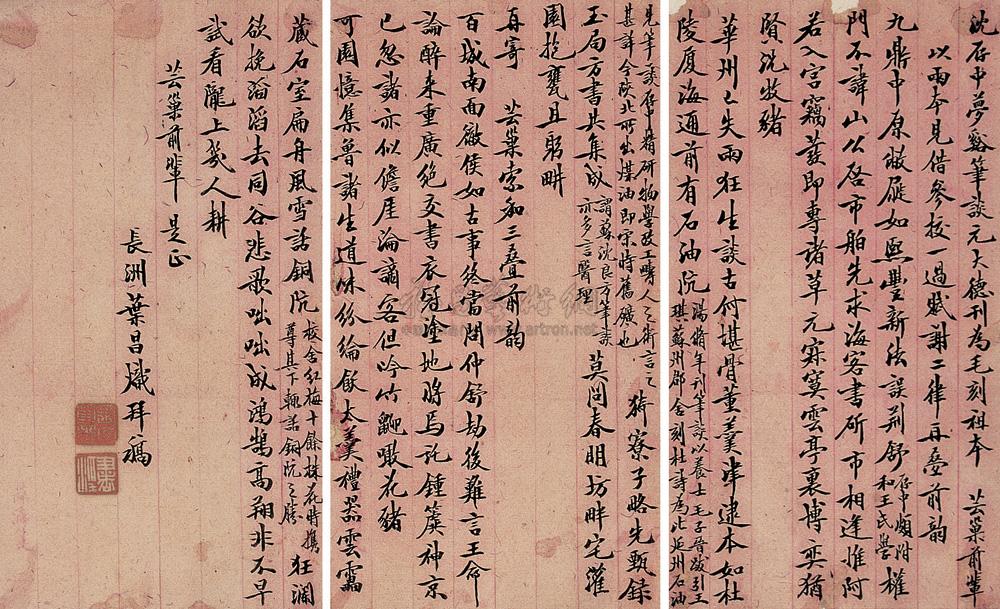 沈存中夢谿筆談元大德刊為毛刻祖本 芸巢前輩
以兩本見借參校一過賦謝二律再疊前韻
九鼎中原雁如熙豐新法誤荊舒 存中頗附和王氏學 權
門不諱山公啓市舶先求海客書斫市相逢惟阿
若入宮竊發即專諸草元寂寞雲亭裏博奕猶
賢況牧豬
華州已失兩狂生談古何堪骨董羹津逮本如杜
陵廈海通前有石油阬 湯脩年刊筆談以養士毛子晉跋引王琪蘇州郡舍刻杜詩為比延州石油
見筆談存中精研物學故工疇人之術言之甚詳今陝北所出煤油即宋時舊礦也 猗寮子略先甄録
玉局方書共集成 謂蘇沈良方筆談亦多言醫理 莫問春明坊畔宅灌
園抱甕且躬畊
再寄 芸巢索和三疊前韻
百城南面儆侯如古事終當問仲舒劫後難言王命
論醉來重廣絶交書衣冠塗地將焉託鍾簴神京
已忽諸亦似儋厓淪謫客但吟竹鼫噉花豬
可園憶集魯諸生道味紛綸飫太羹禮器雲靁
藏石室扁舟風雪話銅阬 校舍紅梅十餘株花時攜尊其下輒話銅阬之勝 狂瀾
欲挽滔滔去同谷悲歌咄咄成鴻鵠高翔非不早
試看隴上幾人耕
芸巢前輩 是正
長洲葉昌熾拜稿